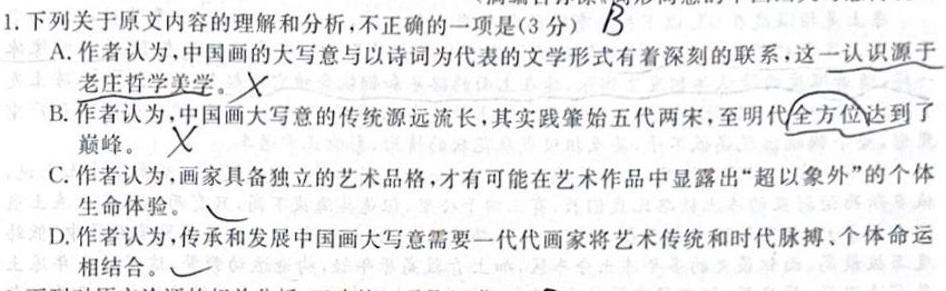 1.下列关于原文内容的理解和分析,不正确的一项是(3分) B
A.作者认为,中国画的大写意与以诗词为代表的文学形式有着深刻的联系,这一认识源于
老庄哲学美学。X
B.作者认为,中国画大写意的传统源远流长,其实践肇始五代两宋,至明代全方位达到了
巅峰。 X
C.作者认为,画家具备独立的艺术品格,才有可能在艺术作品中显露出“超以象外”的个体
生命体验。
D.作者认为,传承和发展中国画大写意需要一代代画家将艺术传统和时代脉搏、个体命运
相结合。